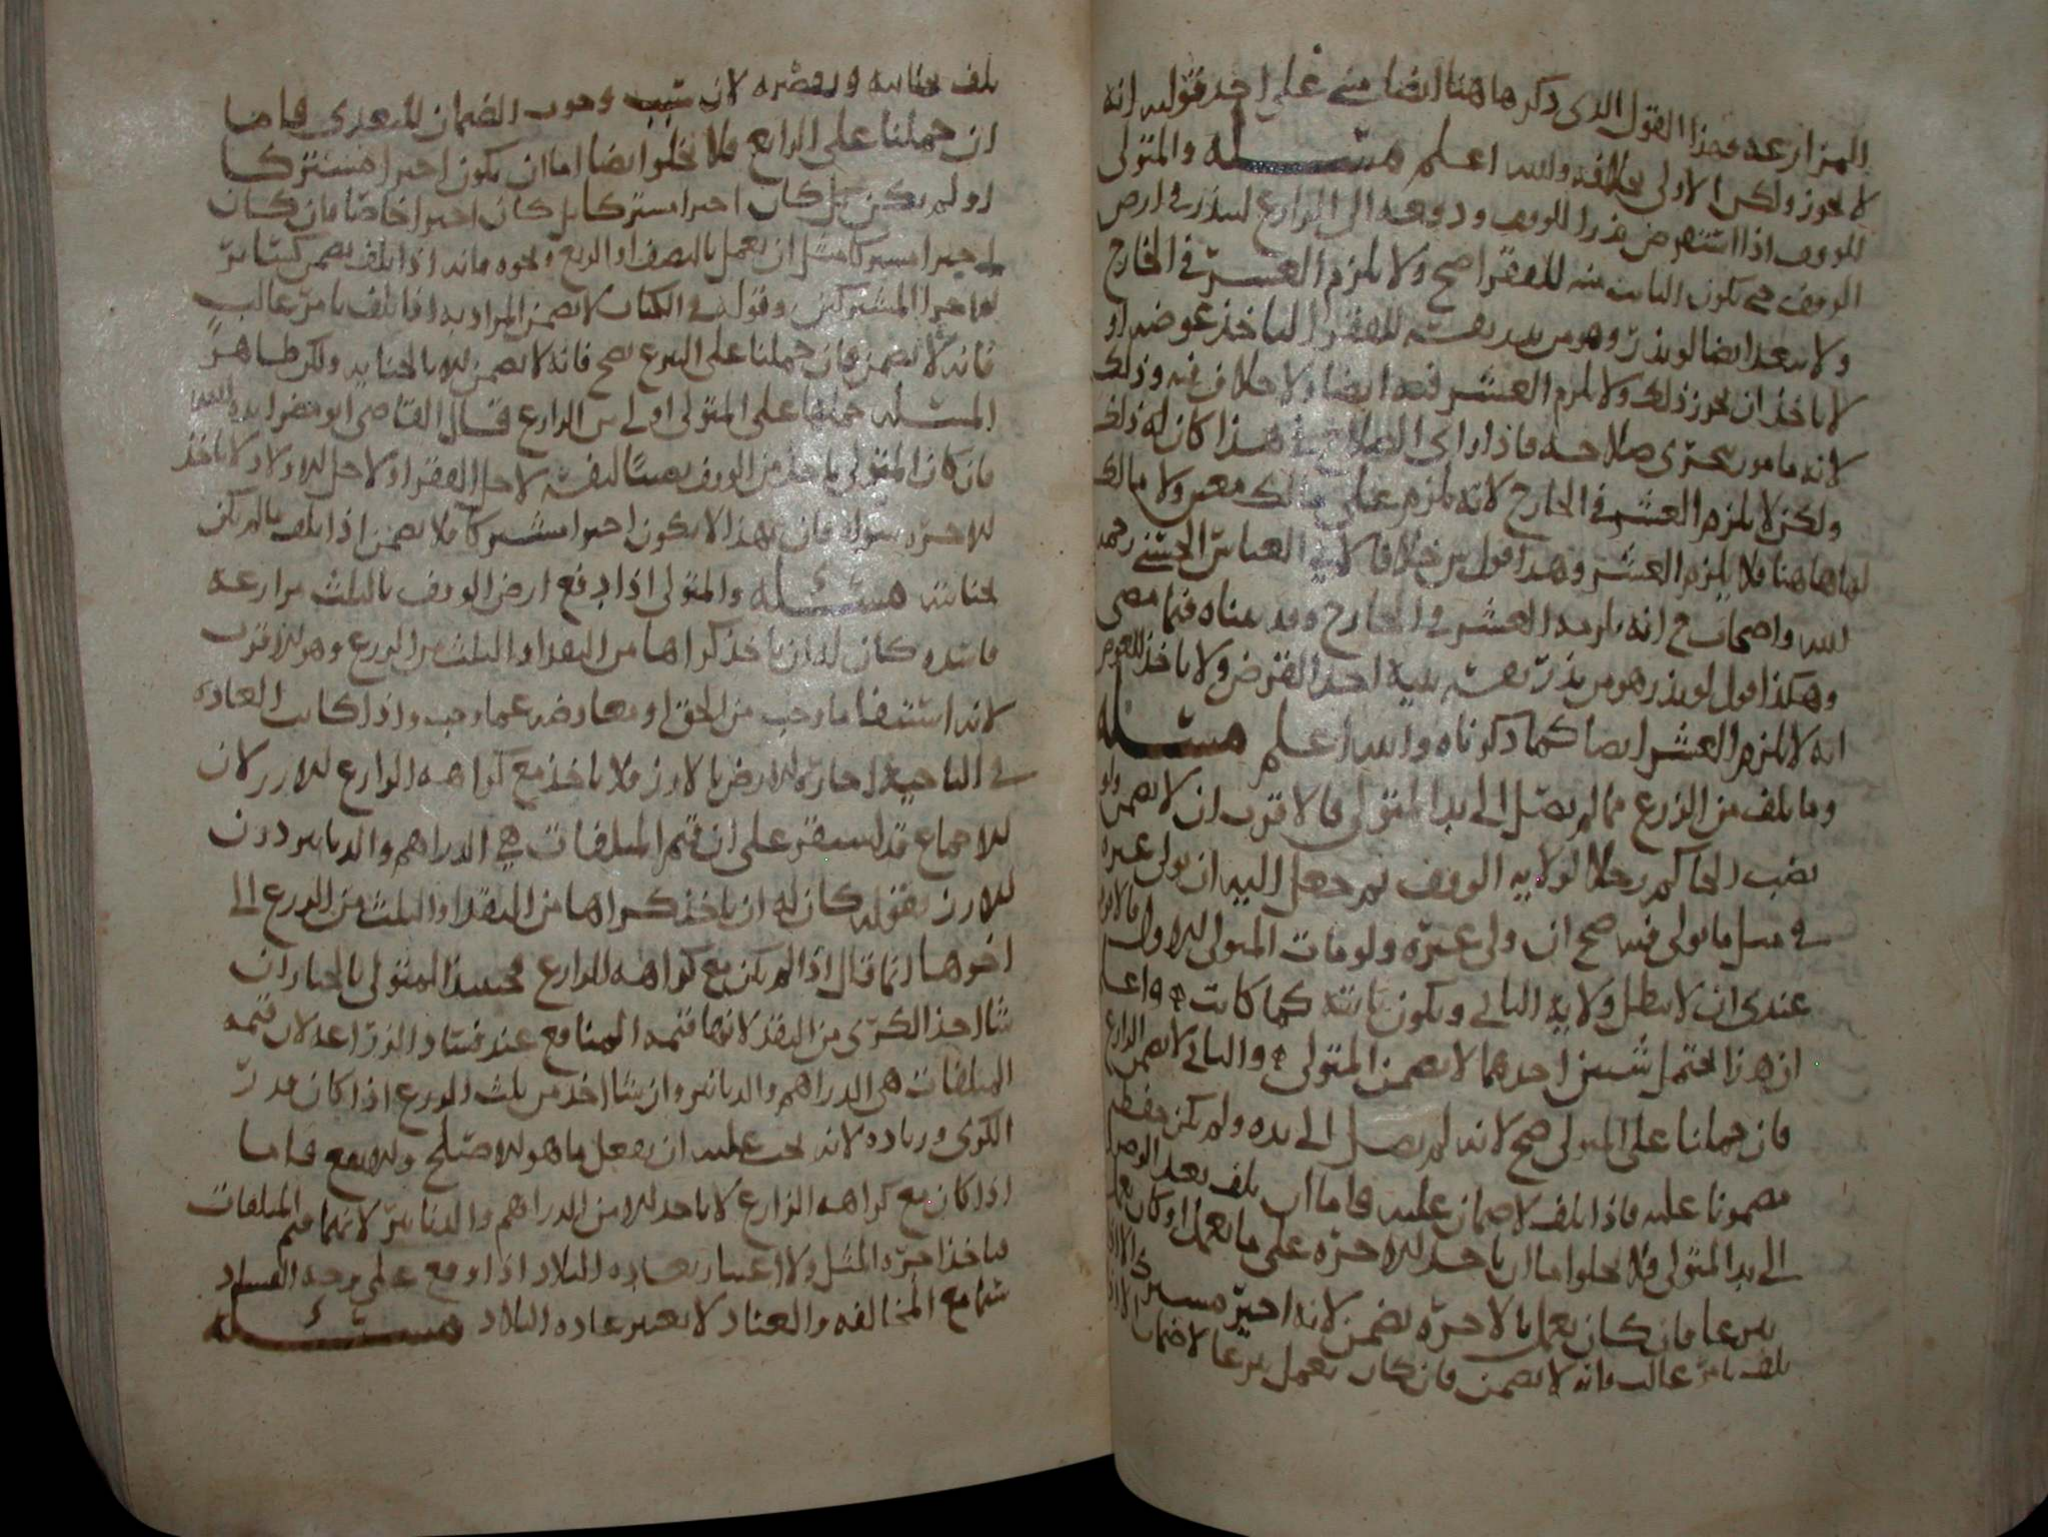 المزارعه فهذا القول الذي ذكر هاهنا ايضا مبني على احد قوليه انه
لا يجوز ولكن الاولى خلافه والله اعلم مسئله والمتولي
للوقف اذا استقرض بذرا للوقف ودفعه الى الزارع ليبذر في ارض
الوقف حتى يكون النابت منه للفقرا صح ولا يلزم العشر في الخارج
ولا يبعد ايضا لو بذر وهو من بذر نفسه للفقرا لياخذ عوضه او
لا ياخذ ان يجوز ذلك ولا يلزم العشر فيه ايضا ولا خلاف فيه وذلك
لانه مامور بتحري صلاحه فاذا راى الصلاح في هذا كان له ذلك
ولكن لا يلزم العشر في الخارج لانه يلزم على مالك معين ولا مالك
لها هاهنا فلا يلزم العشر وهذا قول خلافا لابي العباس الحسني رحمه
الله واصحاب ح انه يلزمه العشر في الخارج وقد بيناه فيما مضى
وهكذا اقول لو بذر هو من بذر نفسه بنية احد القرض ولا ياخذ للعوض
انه لا يلزم العشر ايضا كما ذكرناه والله اعلم مسئله
وما تلف من الزرع مما لم يصل الى يد المتولي فالاقرب ان لا يضمن ولو
نصب الحاكم رجلا لولاية الوقف ثم جعل اليه ان يولي غيره
في مثل ما تولى فيه صح ان ولى غيره ولو مات المتولي الاول فالاقرب
عندي ان لا يبطل ولاية الثاني ويكون ثابته كما كانت واعلم
ان هذا يحتمل شيين احدهما لا يضمن المتولي والثاني لا يضمن الزارع
فان حملنا على المتولي صح لانه لم يصل الى يده ولم يكن حفظه
مضمونا عليه فاذا تلف لا ضمان عليه فاما ان تلف بعد الوصول
الى يد المتولي فلا يخلوا اما ان ياخذ الاجره على ما يعمل او كان يعمل
تبرعا فان كان يعمل بالاجره يضمن لانه اجير مشترك الا اذا
تلف بامر غالب فانه لا يضمن فان كان يعمل تبرعا لا ضمان الا اذا
تلف بجنايته وتقصيره لان سبب وجوب الضمان للتعدي فاما
ان حملنا على الزارع فلا يخلوا ايضا اما ان يكون اجيرا مشتركا
او لم يكن بل كان اجيرا مشتركا بل كان اجيرا خاصا فان كان
اجيرا مشتركا مثل ان يعمل بالنصف او الربع ونحوه فانه اذا تلف يضمن كسائر
لو اجرا المشتركين وقوله في الكتاب لا يضمن المراد به اذا تلف بامر غالب
فانه لا يضمن فان حملنا على التبرع صح فانه لا يضمن الا بالجنايه ولكن ظاهر
المسئله حملها على المتولي اولى من الزارع قال القاضي ابو مضر ايده الله
فان كان المتولي ياخذ من الوقف نصيبا لنفسه لاجل الفقر او لاجل الاولاد لا ياخذ
للاجره سواه فان بهذا لا يكون اجيرا مشتركا فلا يضمن اذا تلف ما لم يكن
بجنايته مسئله والمتولي اذا دفع ارض الوقف بالثلث مزارعه
فاسده كان له ان ياخذ كراها من النقد او الثلث من الزرع وهو الاقرب
لانه استيفا ما وجب من الحق او معاوضه عما وجب واذا كانت العاده
في الناحيه اجارة الارض بالارز فلا ياخذ مع كراهه الزارع الارز لان
الاجماع قد استقر على ان قيم المتلفات هي الدراهم والدنانير دون
الارز بقوله كان له ان ياخذ كراها من النقد او الثلث من الزرع الى
اخرها انما قال اذا لم يكن مع كراهه الزارع فحينئذ المتولي بالخيار ان
شا اخذ الكرى من النقد لانها قيمه المنافع عند فساد الزراعه لان قيمه
المتلفات هي الدراهم والدنانير وان شا اخذ من ثلث الزرع اذا كان قدر
الكرى وزياده لانه يجب عليه ان يفعل ما هو الاصلح والانفع فاما
اذا كان مع كراهه الزارع لا ياخذ الا من الدراهم والدنانير لانهما قيم المتلفات
فياخذ اجرة المثل ولا اعتبار بعاده البلاد اذا وقع على وجه الفساد
سيما مع المخالفه والعناد لا يعتبر عاده البلاد مسئله